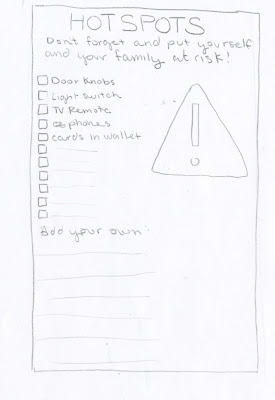 HOT SPOTS
Don't forget and put yourself
and your family at risk!
Door Knobs
Light Switch
TV Remote
phones
cards in wallet
Add your own: